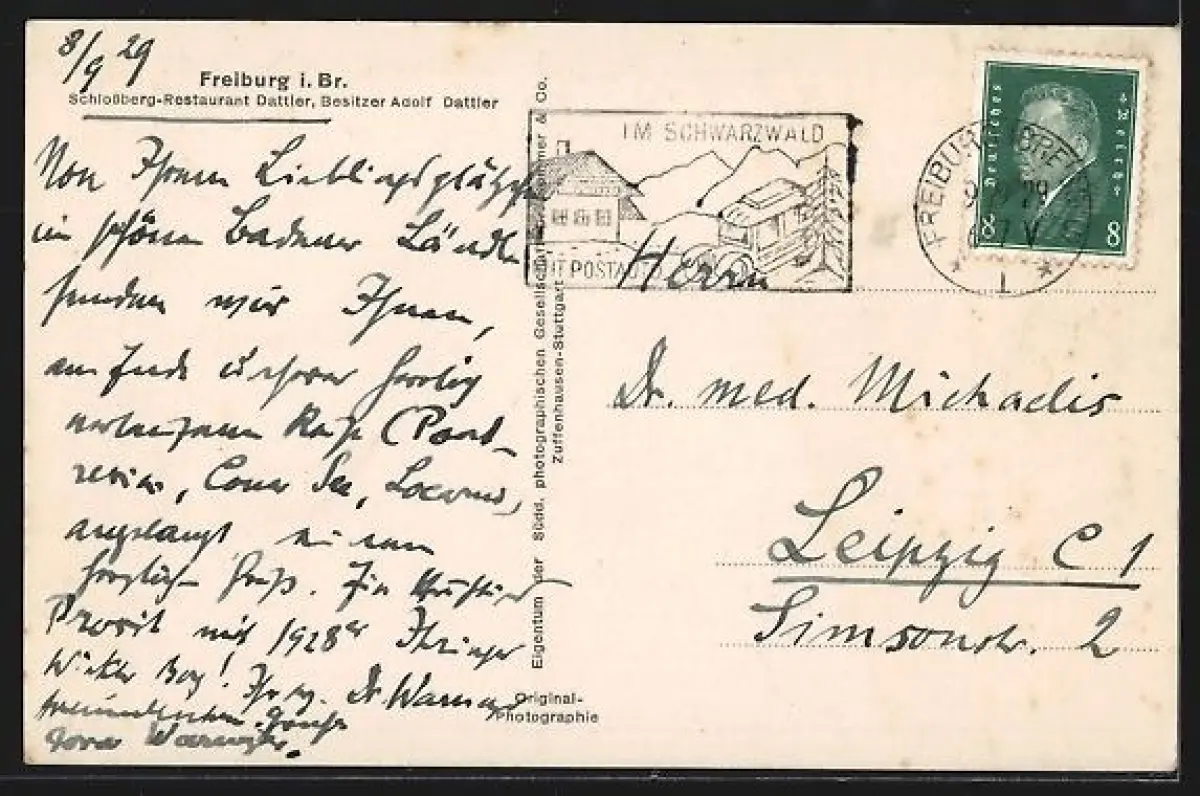 8/9 29
Freiburg i. Br.
Schloßberg-Restaurant Dattler, Besitzer Adolf Dattler
Von Ihrem Lieblingsplätzchen
im schönen Badener Ländle
senden wir Ihnen,
am Ende unserer herrlich
verlaufenen Reise (Pont-
resina, Comer See, Locarno,
angelangt, einen
herzlichen Gruß. Ein
Prosit mit 1928er Ihringer
Winkler Berg! Ihr erg. Dr.
freundlichen Grüße
Eigentum der Südd. photographischen Gesellschaft & Co.
Zuffenhausen-Stuttgart
Original-
Photographie
IM SCHWARZWALD
MIT POSTAUTO
FREIBURG (BREISGAU)
1
Deutsches Reich
8 8
Herrn
Dr. med. Michaelis
Leipzig C 1
Simsonstr. 2